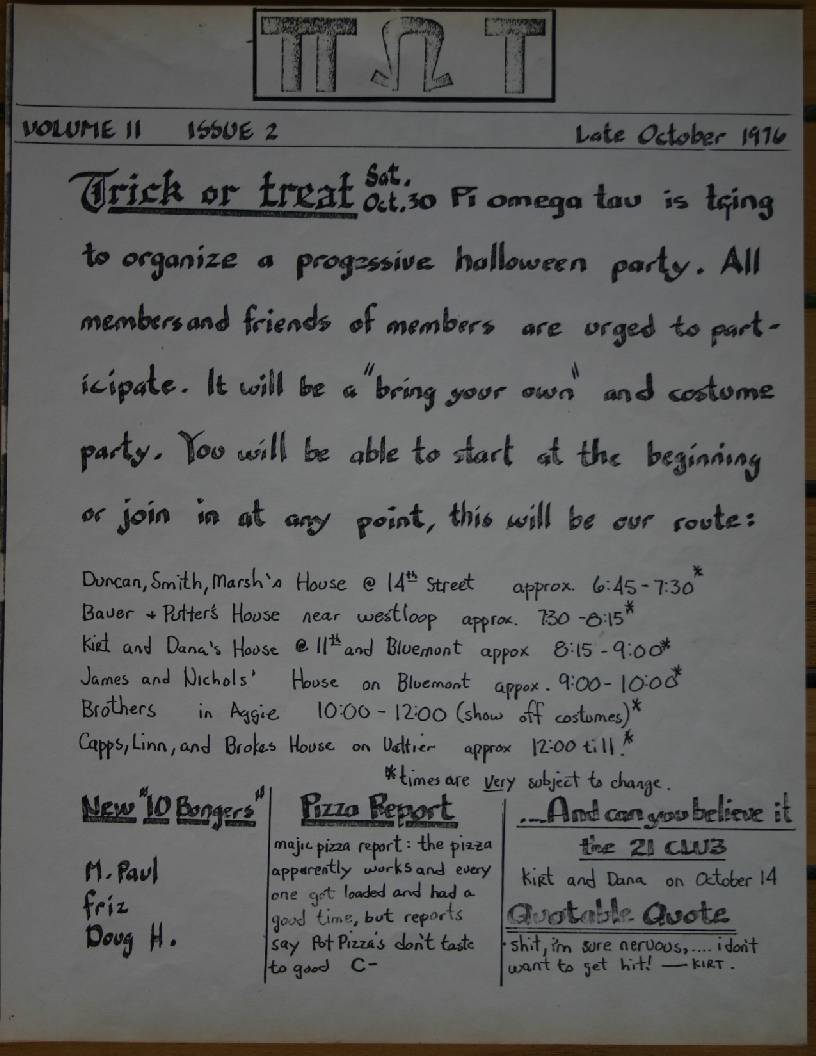 ΠΩΤ
VOLUME II ISSUE 2 Late October 1976
Trick or treat Sat. Oct.30 Pi omega tau is tying
to organize a progessive halloween party. All
members and friends of members are urged to part-
icipate. It will be a "bring your own" and costume
party. You will be able to start at the beginning
or join in at any point, this will be our route:
Duncan, Smith, Marsh's House @ 14th Street approx. 6:45-7:30*
Bauer + Putter's House near westloop approx. 730-8:15*
Kirt and Dana's House @ 11th and Bluemont appox 8:15-9:00*
James and Nichols' House on Bluemont appox. 9:00-10:00*
Brothers in Aggie 10:00-12:00 (show off costumes)*
Capps, Linn, and Brokes House on Vattier approx 12:00 till.*
*times are very subject to change.
New "10 Bongers"
M. Paul
friz
Doug H.
Pizza Report
majic pizza report: the pizza
apparently works and every
one got loaded and had a
good time, but reports
say Pot Pizza's don't taste
to good C-
....And can you believe it
the 21 CLUB
Kirt and Dana on October 14
Quotable Quote
shit, i'm sure nervous,.... i don't
want to get hit! — KIRT.